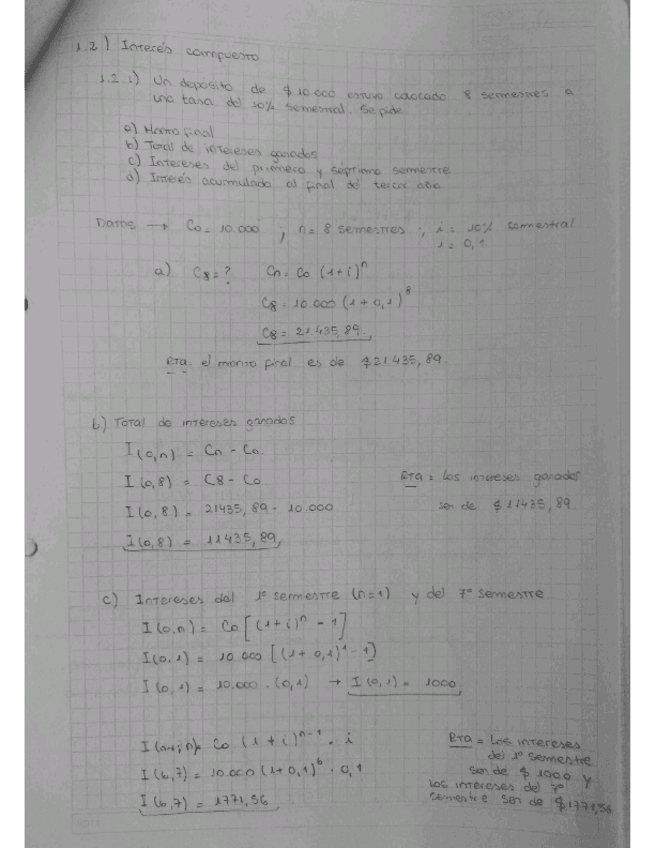 1.2) Interés compuesto
1.2.1) Un deposito de $ 10.000 estuvo colocado 8 semestres a
una tasa del 10% semestral. Se pide.
a) Monto final
b) Total de intereses ganados
c) Intereses del primero y séptimo semestre
d) Interés acumulado al final de tercer año.
Datos → Co = 10.000 ; n = 8 semestres ; i = 10% semestral
i = 0,1
a) C8 = ? Cn = Co (1+i)^n
C8 = 10.000 (1+0,1)^8
C8 = 21.435,89
Rta. el monto final es de $21435,89.
b) Total de intereses ganados
I(0,n) = Cn - Co.
I(0,8) = C8 - Co
Rta = Los intereses ganados
I(0,8) = 21435,89 - 10.000
son de $ 11435,89.
I(0,8) = 11435,89
c) Intereses del 1º semestre (n=1) y del 7º semestre
I(0,n) = Co [(1+i)^n - 1]
I(0,1) = 10.000 [(1+0,1)^1 - 1]
I(0,1) = 10.000 . (0,1) → I(0,1) = 1000
I(n-1;n) = Co (1+i)^n-1 . i
I(6,7) = 10.000 (1+0,1)^6 . 0,1
I(6,7) = 1771,56
Rta = Los intereses
del 1º semestre
son de $ 1000 y
los intereses del 7º
semestre son de $1771,56